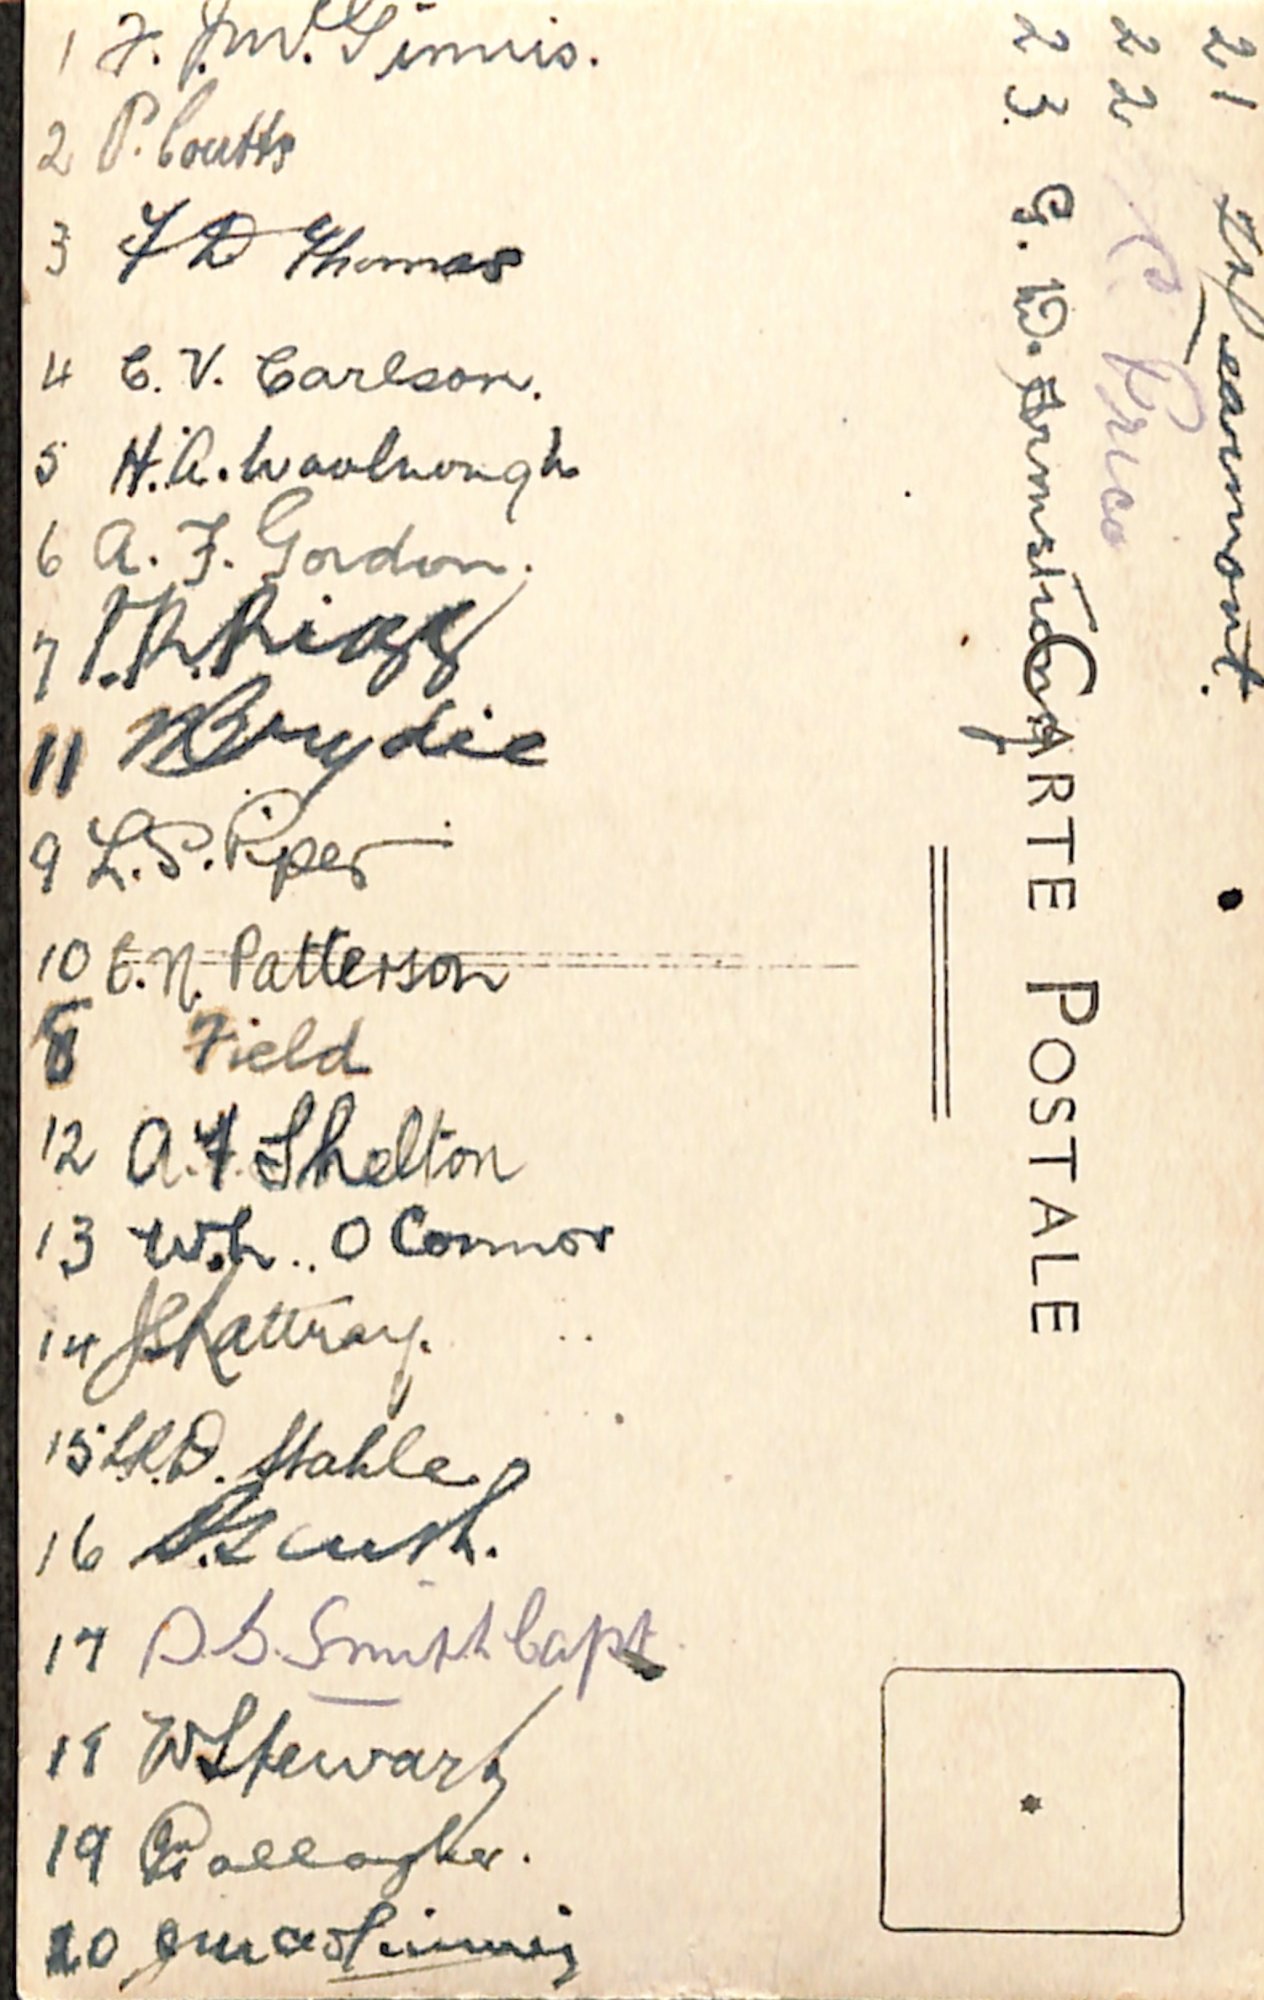 1 F. J. McGinnis.
2 P. Coutts
3 F D Thomas
4 C. V. Carlson.
5 H. A. Woolnough
6 A. F. Gordon.
7 Rigg
11 Brydie
9 L. S. Piper
10 C. N. Patterson
8 Field
12 A. F. Shelton
13 W. L. O Connor
14 J Rattray.
15 D. Stahle
16
17 D. G. Smith Capt
18 W Stewart
19 Gallagher.
20
21 Learmont.
22 Price
23 G. D. Armstrong
CARTE POSTALE